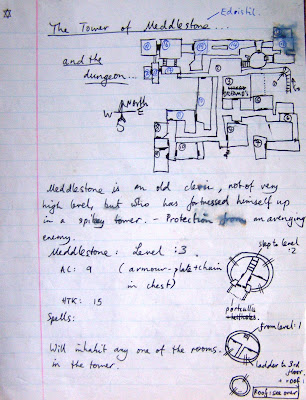 Edoistil.
The Tower of Meddlestone...
and the
dungeon...
North
W E
S
Meddlestone is an old cleric, not of very
high level, but who has fortressed himself up
in a spikey tower. - Protection from an avenging
enemy.
Meddlestone: Level: 3.
AC: 9 (armour-plate + chain
in chest)
HTK: 15
Spells:
Will inhabit any one of the rooms.
in the tower.
step to level
:2
portcullis
from level: 1
ladder to 3rd
floor
+ roof
Roof: see over